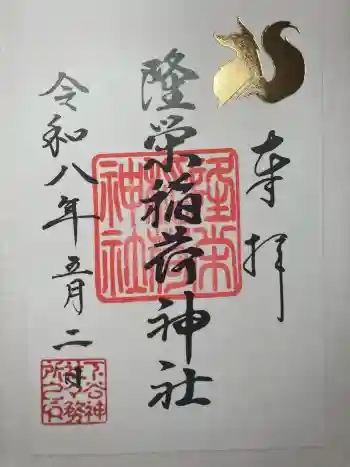 奉拝
隆栄稲荷神社
令和八年五月二日
隆栄稲荷神社
下谷神社務所之印